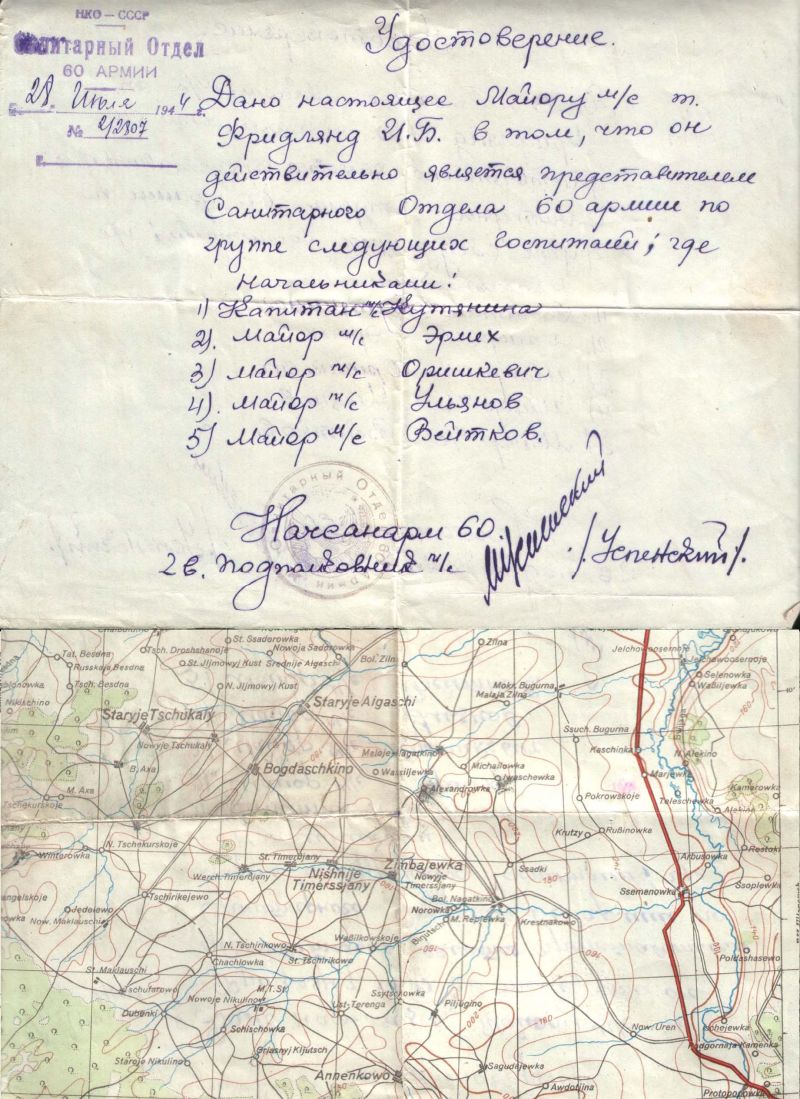 НКО – СССР
Санитарный Отдел
60 АРМИИ
28 Июля 1944 г.
№ 2/2807
Удостоверение.
Дано настоящее Майору м/с т.
Фридлянд И.Б. в том, что он
действительно является представителем
Санитарного Отдела 60 армии по
группе следующих госпиталей, где
начальниками:
1) Капитан м/с Кутянина
2). Майор м/с Эрмех
3) Майор м/с Оришкевич
4). Майор м/с Ульянов
5) Майор м/с Войтков.
Начсанарм 60
2в. подполковник м/с
/Успенский/.
St. Ssaderowka
Tsch. Droshshanoje
Nowoja Saderowka
Zilna
Jelchowoosernoje
Tat. Besdna
Russkaja Besdna
St. Jljmowyj Kust
Srednije Algaschi
Bol. Zilna
Jelchowoosernoje
Selenowka
Wasiljewka
Tsch. Besdna
N. Jljmowyj Kust
Mokr. Bugurna
Malaja Zilna
Nikischino
Staryje Algaschi
Staryje Tschukaly
Ssuch. Bugurna
Nowyje Tschukaly
Kaschinka
N. Alekino
B. Axa
Bogdaschkino
Wassiljewka
Michailowka
Iwaschewka
Marjewka
Kamerowka
M. Axa
Alexandrowka
Pokrowskoje
Teleschewka
Tschekurskoje
Krutzy
Rußinowka
Winterowka
N. Tschekurskoje
St. Timersjany
Zimbajewka
Ssadki
Arbusowka
Werch. Timersjany
Nishnije
Timerssjany
Nowyje
Timerssjany
Ssemenowka
Ssoplewka
Jedelewo
Tschirikejewo
Bol. Nagatkino
Norowka
M. Repjewka
Krestnakowo
Now. Maklauschi
N. Tschirikowo
Waßilkowskoje
St. Tschirikowo
Chachlowka
Poldashasewo
St. Maklauschi
Tschufarowo
M.T.St.
Nowoje Nikulino
Ssytschowka
Dubenki
Ust-Terenga
Piljugino
Schischowka
Now. Uren
Staroje Nikulino
Griasnyj Kljutsch
Podgornaja Kamenka
Ssagudajewka
Annenkowo
Awdotjina
Protopopowka